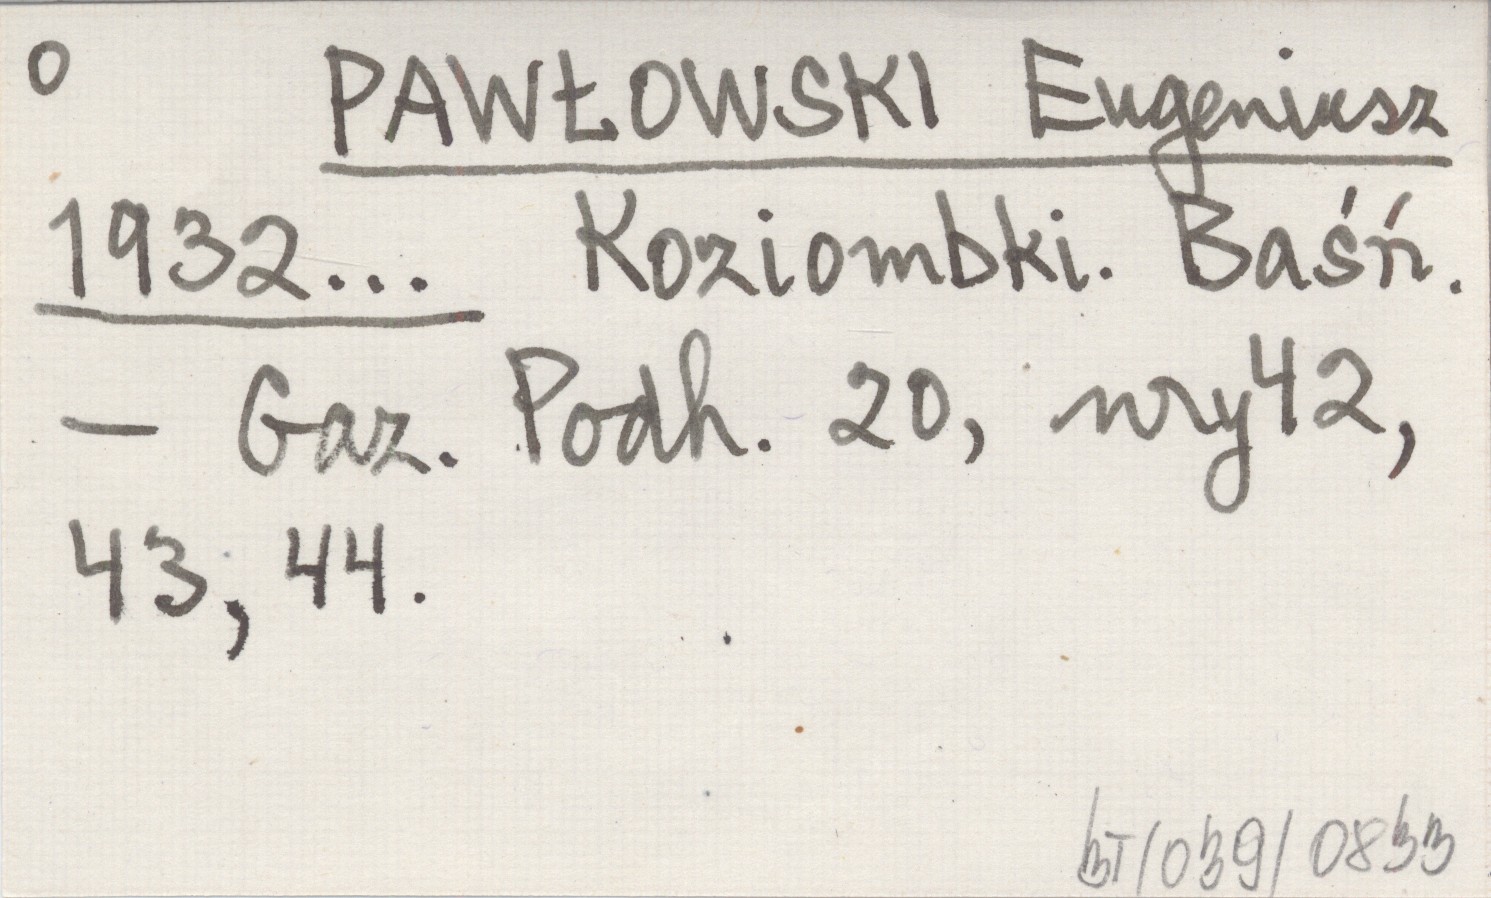 O PAWŁOWSKI Eugeniusz
1932... Koziombki. Baśń.
— Gaz. Podh. 20, nry 42,
43, 44.
BT/039/0833